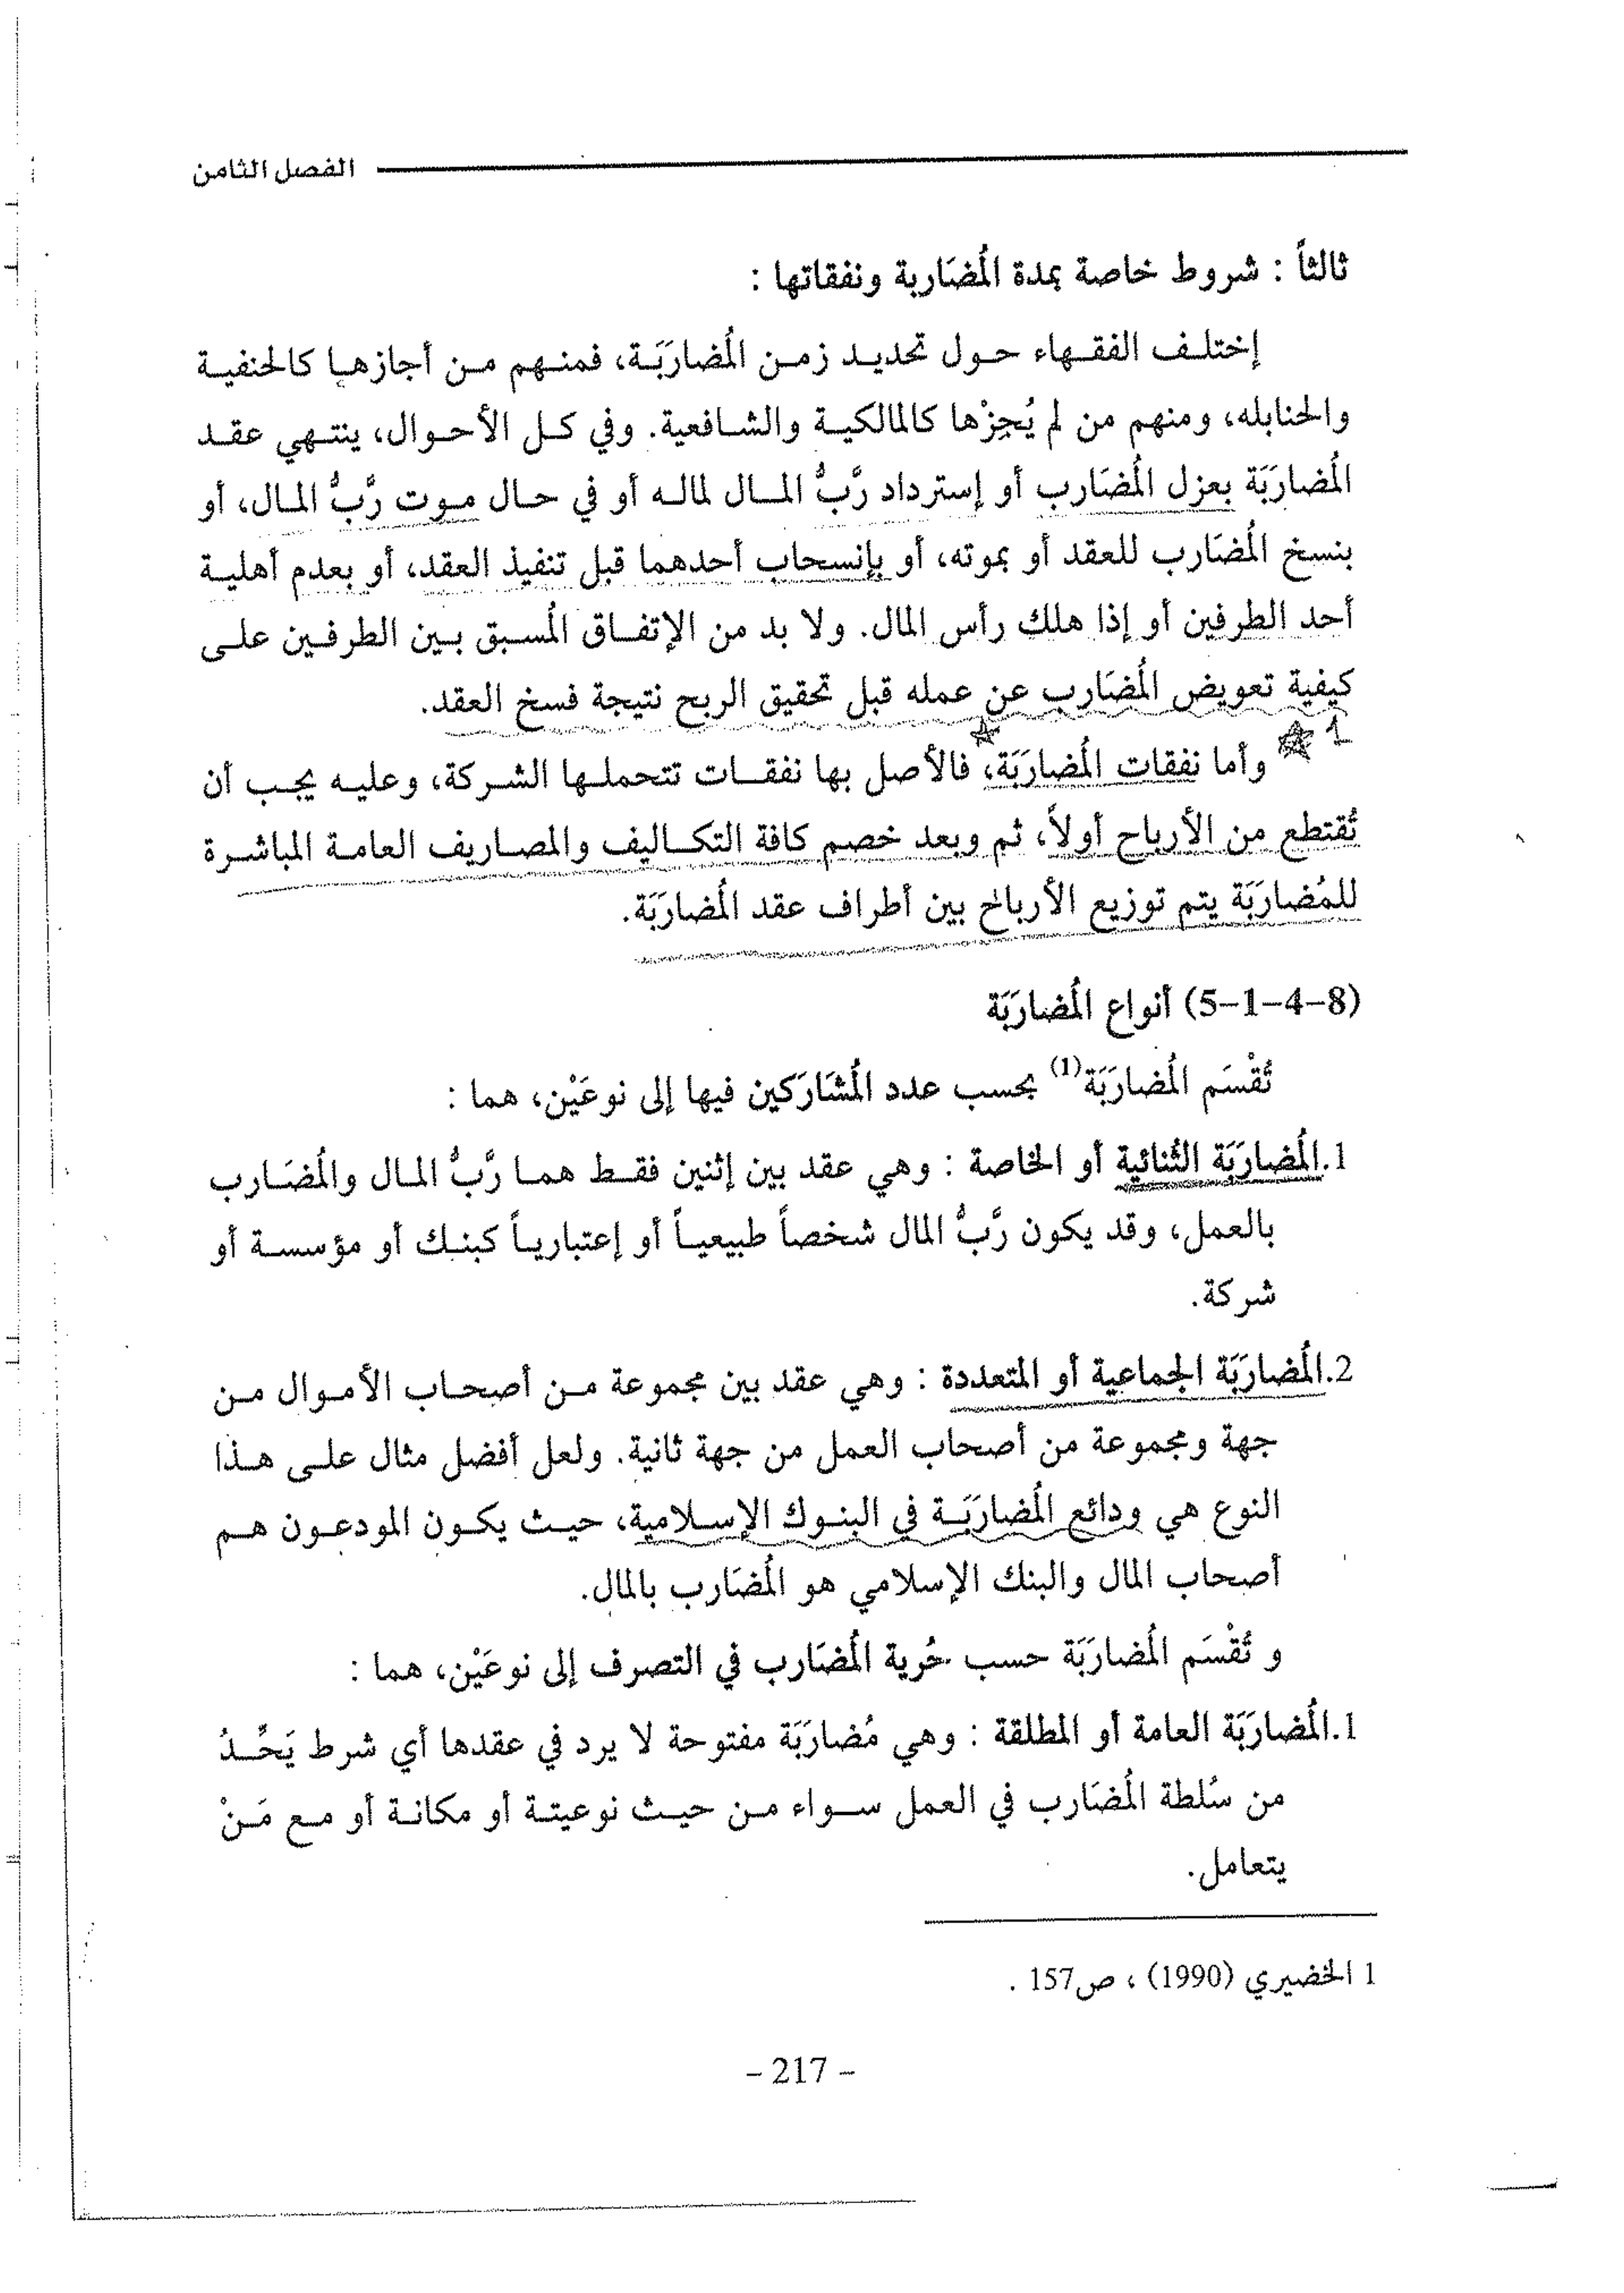 الفصل الثامن
ثالثاً : شروط خاصة بمدة المُضَاربة ونفقاتها :
إختلف الفقهاء حول تحديد زمن المُضارَبَة، فمنهم من أجازها كالحنفية
والحنابله، ومنهم من لم يُجِزْها كالمالكية والشافعية. وفي كل الأحوال، ينتهي عقد
المُضارَبَة بعزل المُضَارب أو إسترداد رَّبُّ المال لماله أو في حال موت رَّبُّ المال، أو
بنسخ المُضَارب للعقد أو بموته، أو بإنسحاب أحدهما قبل تنفيذ العقد، أو بعدم أهلية
أحد الطرفين أو إذا هلك رأس المال. ولا بد من الإتفاق المُسبق بين الطرفين على
كيفية تعويض المُضَارب عن عمله قبل تحقيق الربح نتيجة فسخ العقد.
1
وأما نفقات المُضارَبَة، فالأصل بها نفقات تتحملها الشركة، وعليه يجب أن
تُقتطع من الأرباح أولاً، ثم وبعد خصم كافة التكاليف والمصاريف العامة المباشرة
للمُضارَبَة يتم توزيع الأرباح بين أطراف عقد المُضارَبَة.
(8-4-1-5) أنواع المُضارَبَة
تُقْسَم المُضارَبَة(1) بحسب عدد المُشَارَكين فيها إلى نوعَيْن، هما :
1.المُضارَبَة الثُنائية أو الخاصة : وهي عقد بين إثنين فقط هما رَّبُّ المال والمُضَارب
بالعمل، وقد يكون رَّبُّ المال شخصاً طبيعياً أو إعتبارياً كبنك أو مؤسسة أو
شركة.
2.المُضارَبَة الجماعية أو المتعددة : وهي عقد بين مجموعة من أصحاب الأموال من
جهة ومجموعة من أصحاب العمل من جهة ثانية. ولعل أفضل مثال على هذا
النوع هي ودائع المُضارَبَة في البنوك الإسلامية، حيث يكون المودعون هم
أصحاب المال والبنك الإسلامي هو المُضَارب بالمال.
و تُقْسَم المُضارَبَة حسب حُرية المُضَارب في التصرف إلى نوعَيْن، هما :
1.المُضارَبَة العامة أو المطلقة : وهي مُضارَبَة مفتوحة لا يرد في عقدها أي شرط يَحَّدُ
من سُلطة المُضَارب في العمل سواء من حيث نوعيتة أو مكانة أو مع مَنْ
يتعامل.
1 الخضيري (1990) ، ص157 .
- 217 -